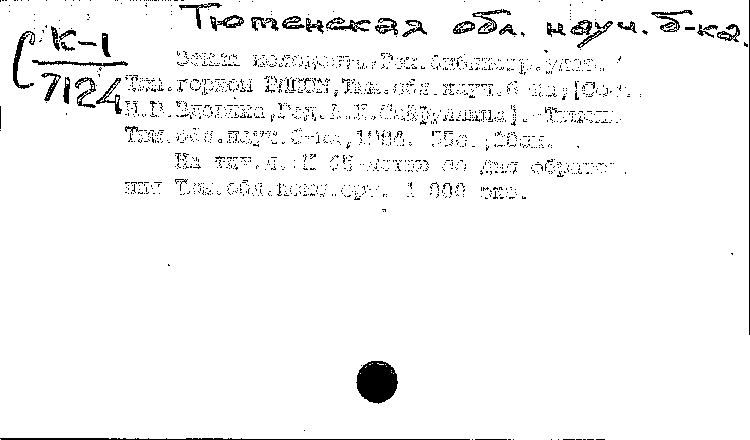 Тюменская обл. науч. б-ка.
К-1
7124
Земля молодости. Рек. библиогр. указ. /
Тюм. горком ВЛКСМ, Тюм. обл. науч. б-ка; [Сост.
Н.В. Вдовина, Ред. А.И. ]. - Тюмень:
Тюм. обл. науч. б-ка, 198 . 35с.; 20см.
На тит. л.: К 65-летию со дня образов
ния Тюм. обл. комс. орг. 1 000 экз.